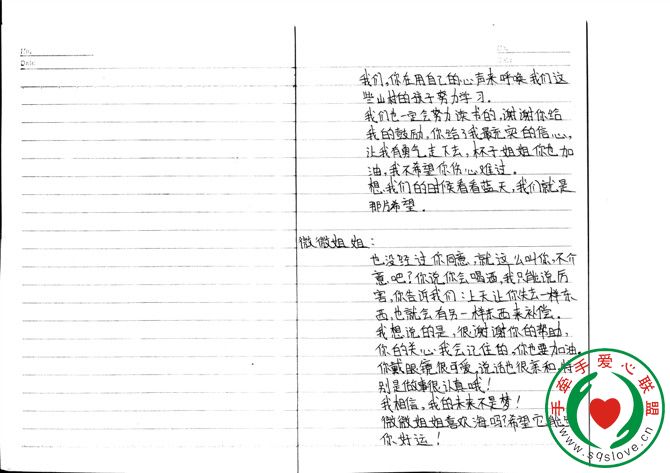 No.
Date
No.
Date
我们,你在用自己的心声来呼唤我们这
些山村的孩子努力学习.
我们也一定会努力读书的,谢谢你给
我的鼓励,你给了我最充实的信心,
让我有勇气走下去,杯子姐姐你也加
油,我不希望你伤心难过.
想我们的时候看看蓝天,我们就是
那片希望.
微微姐姐:
也没经过你同意,就这么叫你,不介
意吧?你说你会喝酒,我只能说厉
害,你告诉我们:上天让你失去一样东
西,也就会有另一样东西来补偿.
我想说的是,很谢谢你的帮助,
你的关心.我会记住的,你也要加油.
你戴眼镜很可爱,说话也很亲和,特
别是做事很认真哦!
我相信,我的未来不是梦!
微微姐姐喜欢海吗?希望它能
你好运!
手牵手爱心联盟
www.sqslove.cn